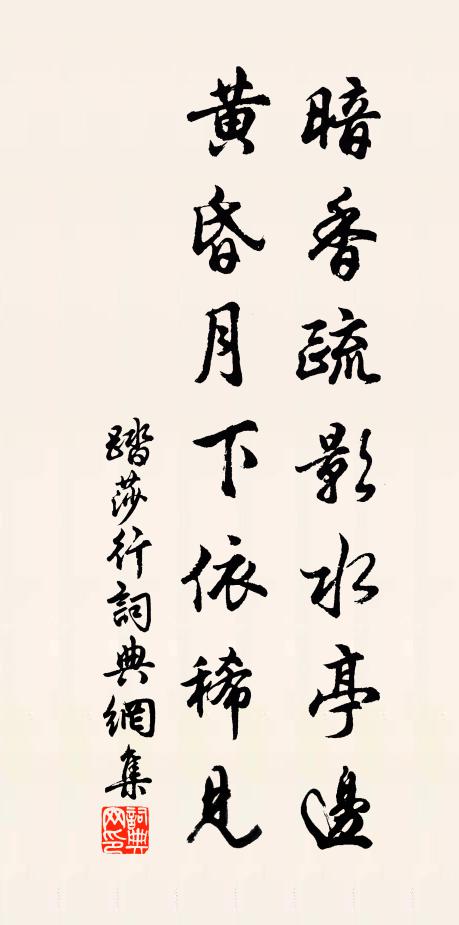 暗香疏影水亭邊
黃昏月下依稀見
踏莎行詞典網集
詞典網印